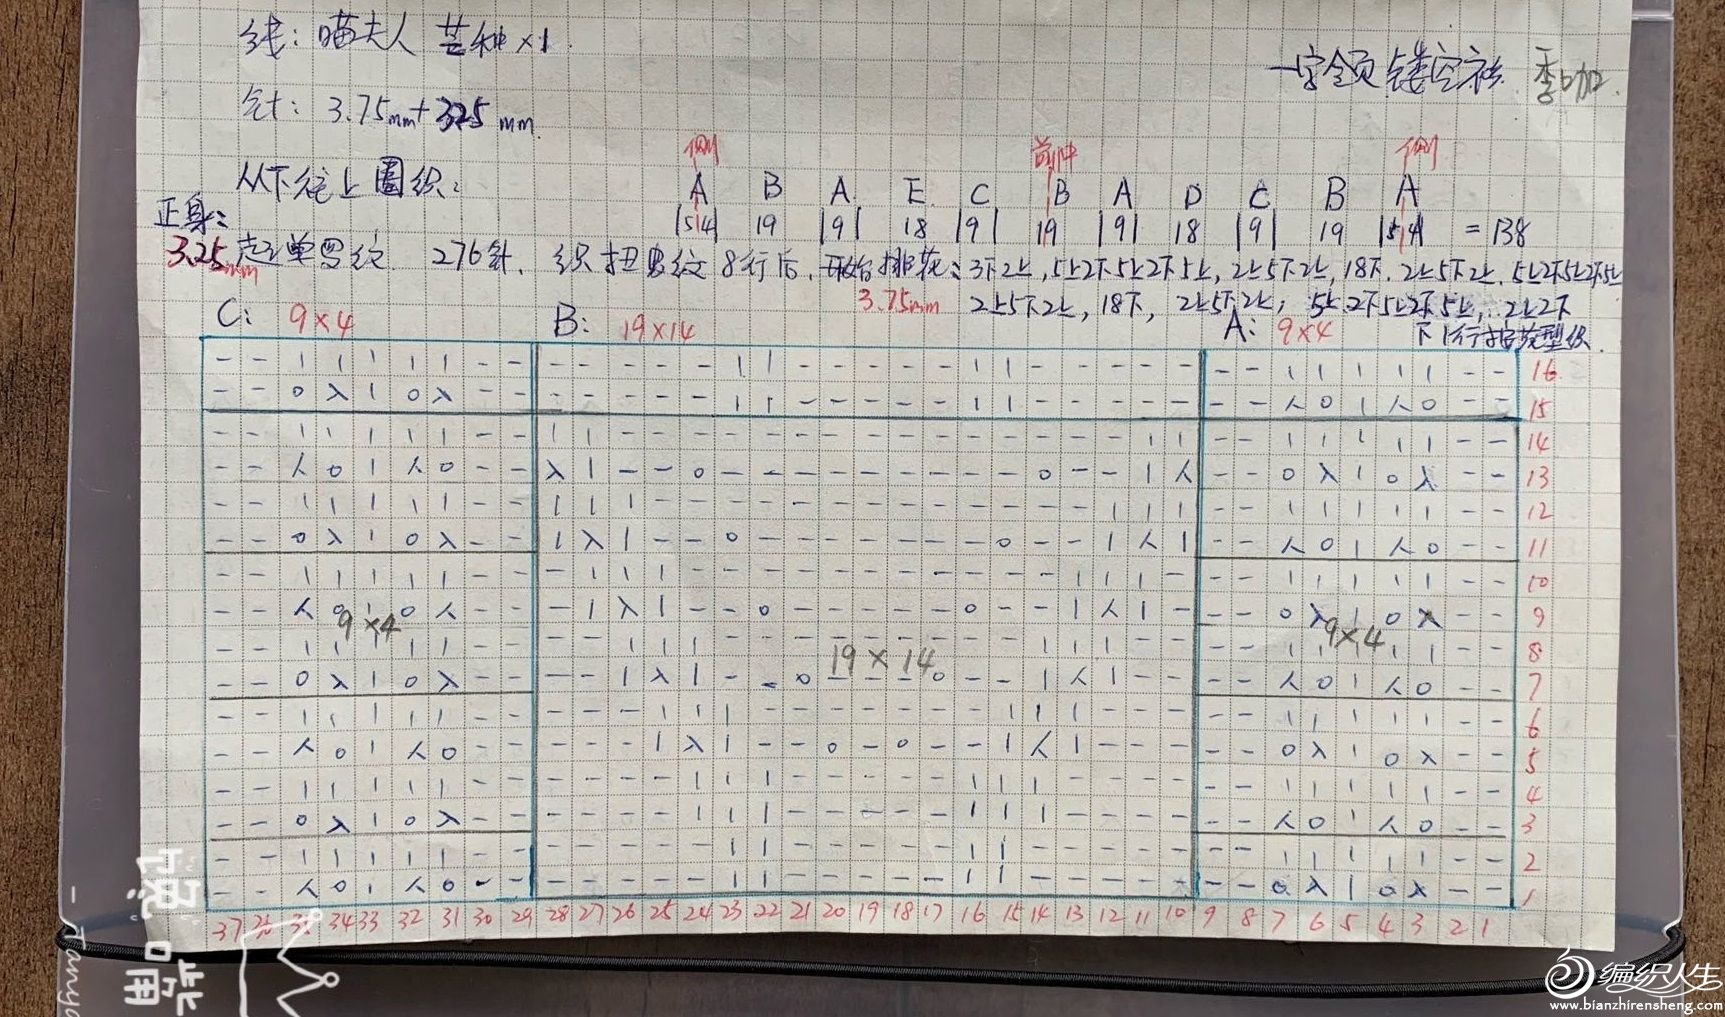 线：喵夫人 芒种×1.
一字领镂空衫. 季咖.
针：3.75mm+3.25mm
侧 前中 侧
从下往上圈织：
A B A E C B A D C B A
正身：
|5|4| 19 |9| 18 |9| 19 |9| 18 |9| 19 |5|4| =138
3.25mm 起单罗纹 276针. 织扭罗纹8行后. 开始排花：3下2上,5上2下5上2下5上,2上5下2上,18下.2上5下2上.5上2下5上2下5上
3.75mm 2上5下2上,18下,2上5下2上;5上2下5上2下5上,2上2下
下1行按花型织.
C: 9×4 B: 19×14 A: 9×4
- - | | | | | - - - - - - - - | | - - - - - | | - - - - - - - - | | | | | - - 16
- - o λ | o λ - - - - - - - - | | - - - - - | | - - - - - - - - 人 o | 人 o - - 15
- - | | | | | - - | | - - - - - - - - - - - - - - - | | - - | | | | | - - 14
- - 人 o | 人 o - - λ | - - o - - - - - - - - - o - - | 人 - - o λ | o λ - - 13
- - | | | | | - - | | | - - - - - - - - - - - - - | | | - - | | | | | - - 12
- - o λ | o λ - - | λ | - - o - - - - - - - o - - | 人 | - - 人 o | 人 o - - 11
- - | | | | | - - - | | | - - - - - - - - - - - | | | - - - | | | | | - - 10
- - 人 o | o 人 - - - | λ | - - o - - - - - o - - | 人 | - - - o λ | o λ - - 9
9×4 9×4
- - | | | | | - - - - | | | - - - - - - - - - | | | - - - - | | | | | - - 8
19×14
- - o λ | o λ - - - - | λ | - - o - - - o - - | 人 | - - - - 人 o | 人 o - - 7
- - | | | | | - - - - - | | | - - - - - - - | | | - - - - - | | | | | - - 6
- - 人 o | 人 o - - - - - | λ | - - o - o - - | 人 | - - - - - o λ | o λ - - 5
- - | | | | | - - - - - - | | | - - - - - | | | - - - - - - | | | | | - - 4
- - o λ | o λ - - - - - - | | | - - - - - | | | - - - - - - 人 o | 人 o - - 3
- - | | | | | - - - - - - - | | - - - - - | | - - - - - - - - | | | | | - - 2
- - 人 o | 人 o - - - - - - - | | - - - - - | | - - - - - - - - o λ | o λ - - 1
37 36 35 34 33 32 31 30 29 28 27 26 25 24 23 22 21 20 19 18 17 16 15 14 13 12 11 10 9 8 7 6 5 4 3 2 1
编织人生
www.bianzhirensheng.com